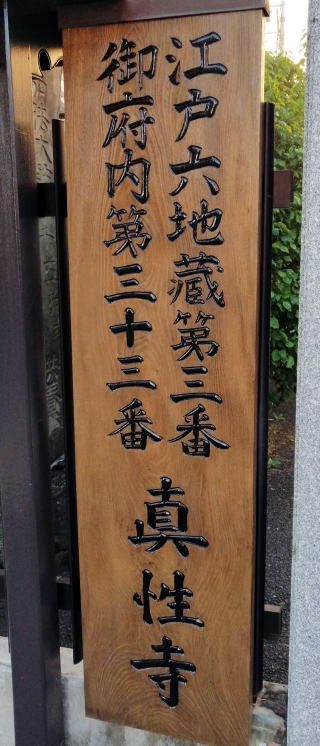 江戸六地蔵第三番
御府内第三十三番
真性寺